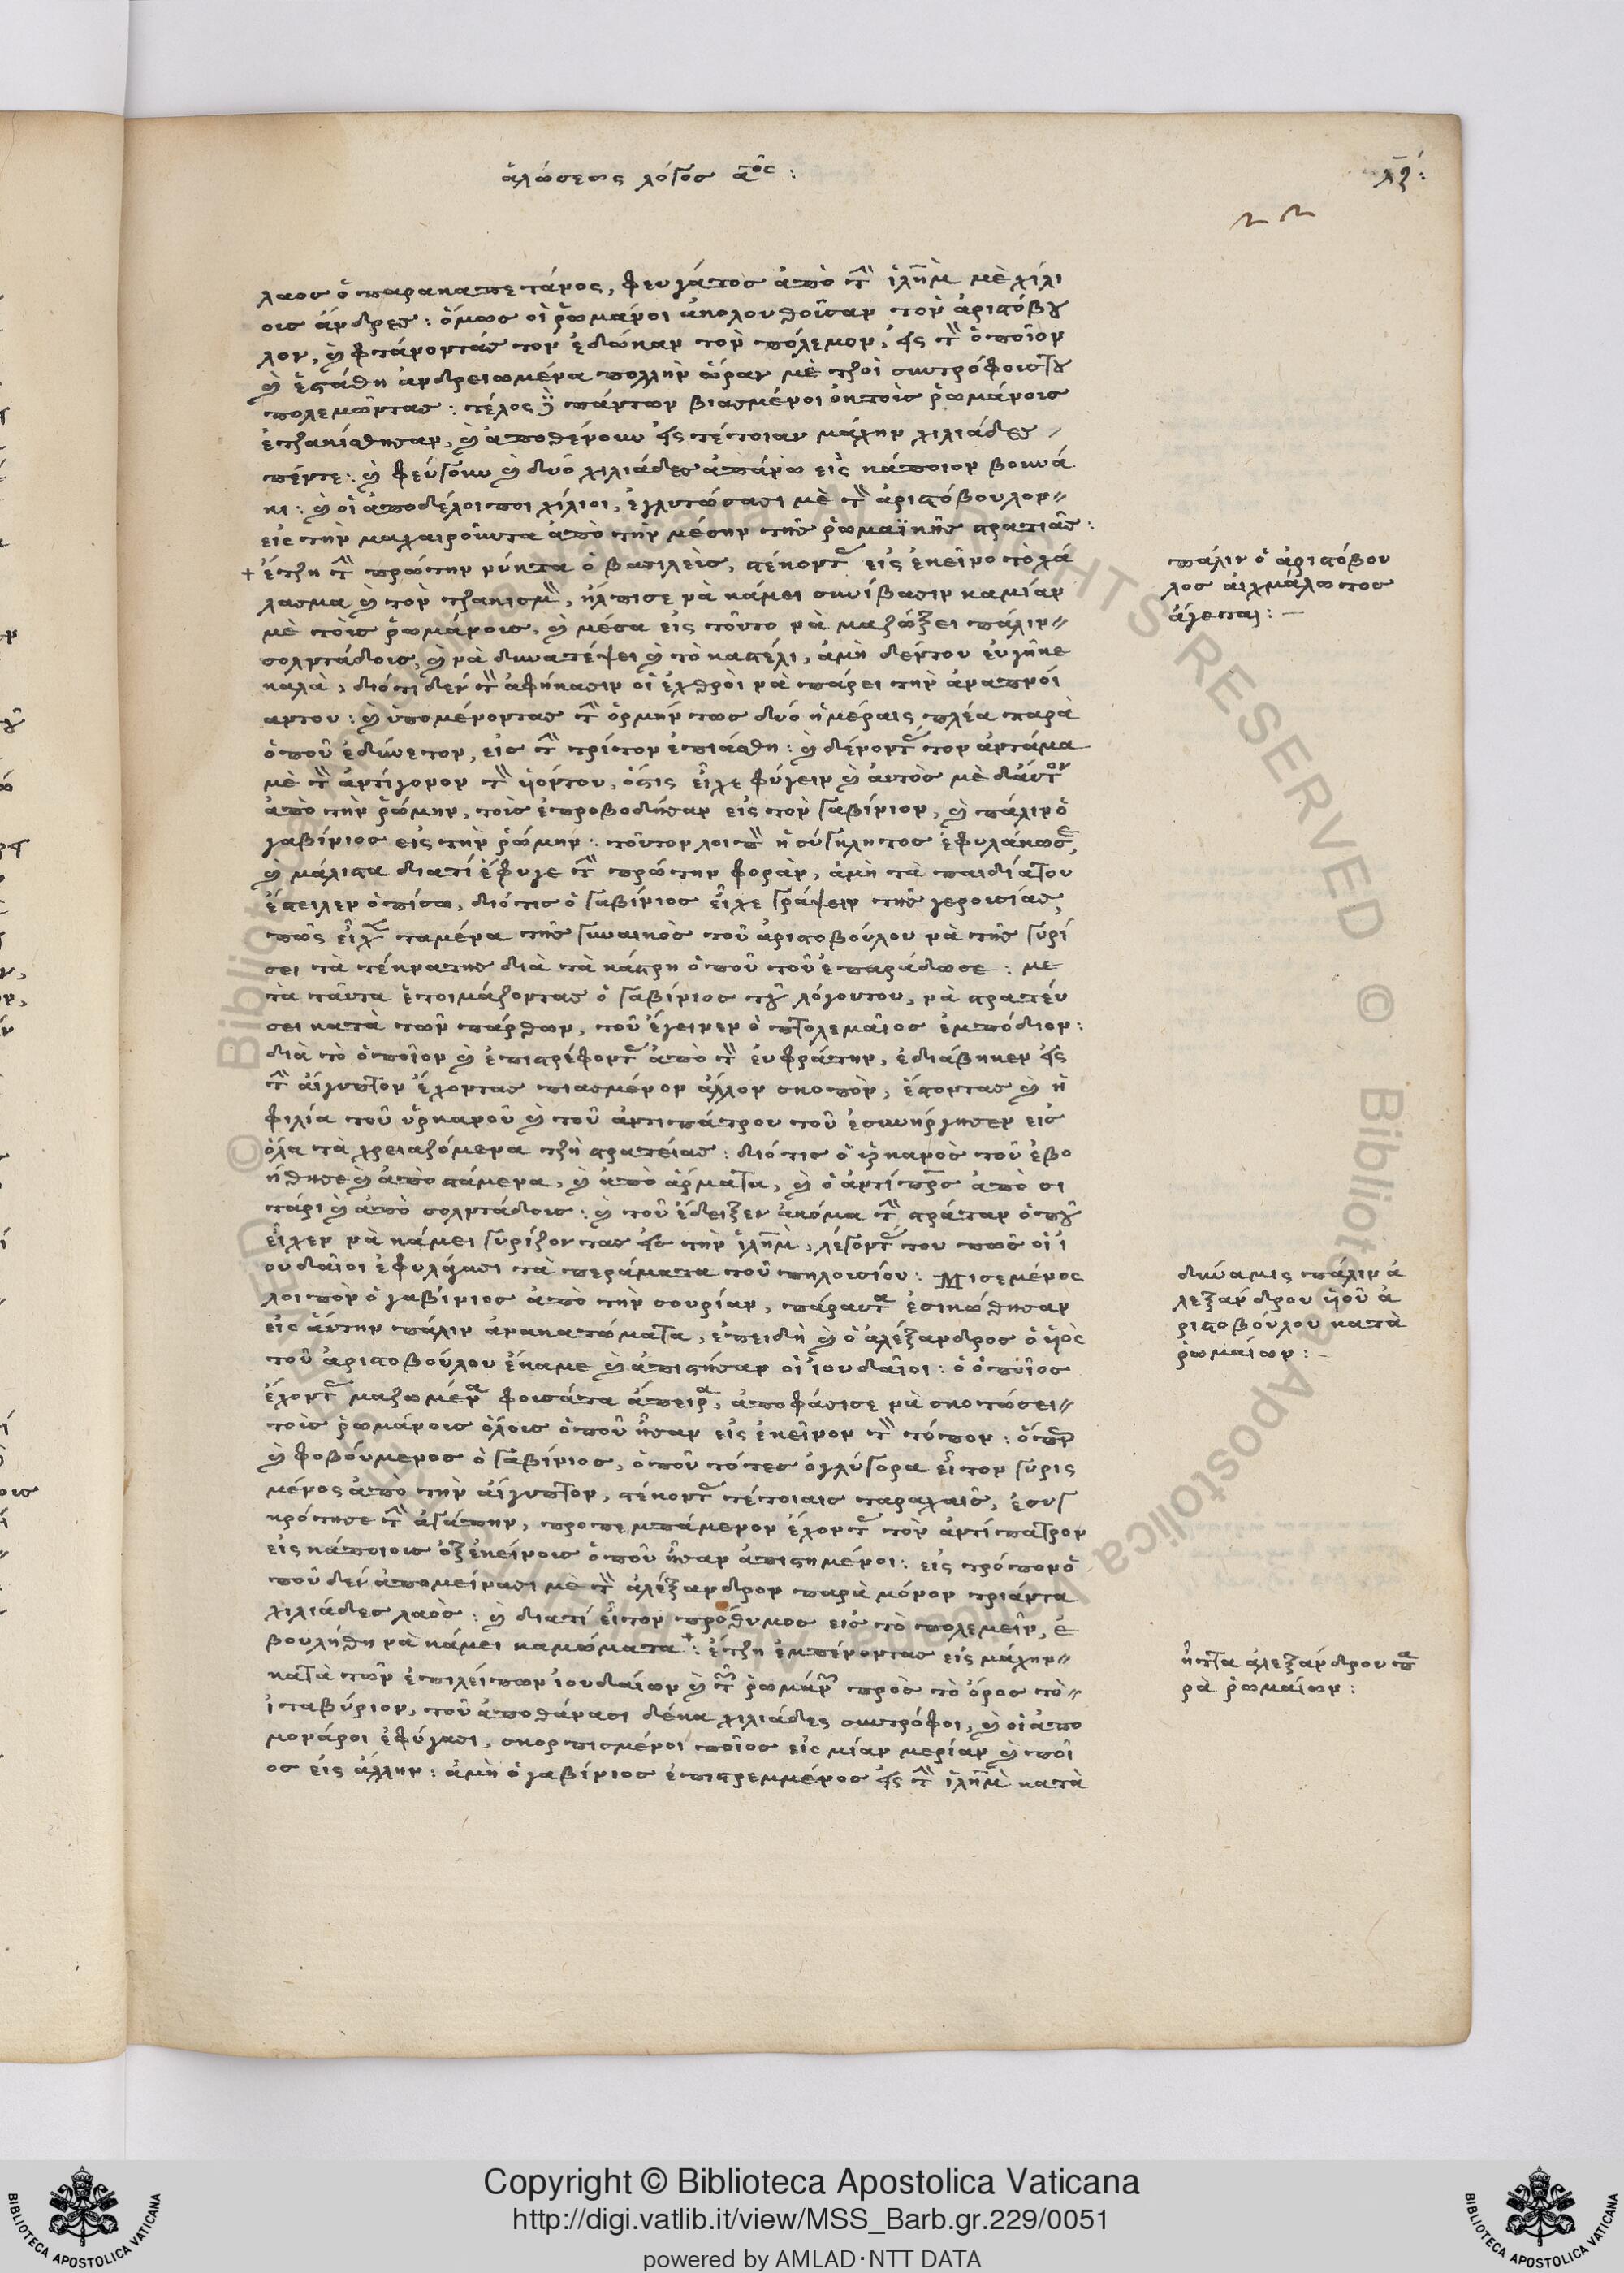 ἁλώσεως λόγος αος :
λζ :
λαος ὁ παρακαπετάνος, φευγάτος ἀπὸ τὴν ἱλημ μὲ χίλι
οις ἄνδρες : ὅμως οἱ ῥωμάνοι ἀκολουθοῦσαν τὸν ἀριστόβου
λον, καὶ φτάνοντάς τον ἐδώκαν τὸν πόλεμον, εἰς τὸν ὁποῖον
καὶ ἐστάθη ἀνδρειωμένα πολλὴν ὥραν μὲ τζοὶ συντρόφοιστου
πολεμῶντας : τέλος πάντων βιασμένοι ὀκτοὶς ῥωμάνοις
ἐτζακίσθησαν, καὶ ἀποθένουν εἰς τέτοιαν μάχην χιλιάδες
πέντε : καὶ φεύγουν καὶ δυό χιλιάδες ἀπάνω εἰς κάποιον βουνά
κι : καὶ οἱ ἀποδέλοιποι χίλιοι, ἐγλυτώσασι μὲ τὸν ἀριστόβουλον
εἰς τὴν μαχαιροῦντα ἀπὸ τὴν μέσην τῆς ῥωμαϊκῆς στρατιᾶς :
+ ἔτζη τὴν πρώτην νύκτα ὁ βασιλεὺς, στέκοντας εἰς ἐκεῖνο τὸ χά
λασμα καὶ τὸν τζακισμὸν, ἤλπισε νὰ κάμει συνίβασιν καμίαν
μὲ τοὶς ῥωμάνοις, καὶ μέσα εἰς τοῦτο νὰ μαζώξει πάλιν
σολντάδοις, καὶ νὰ δυνατέψει καὶ τὸ καστέλι, ἀμὴ δέντου εὐγῆκε
καλὰ, διότι δέν τὸν ἀφήκασιν οἱ ἐχθροὶ νὰ πάρει τὴν ἀναπνόί
αντου : καὶ ὑπομένοντας τὴν ὁρμήν τως δυό ἡμέραις πλέα παρὰ
ὁποῦ ἐδύνετον, εἰς τὴν τρίτον ἐπιάσθη : καὶ δένοντάς τον ἀντάμα
μὲ τὸν ἀντίγονον τὸν ὑιόντου, ὅστις εἶχε φύγειν καὶ αὐτὸς μὲ δαύτον
ἀπὸ τὴν ῥώμην, τοὶς ἐπροβοδήσαν εἰς τὸν γαβίνιον, καὶ πάλιν ὁ
γαβίνιος εἰς τὴν ῥώμην : τοῦτον λοιπὸν ἡ σύγκλητος ἐφυλάκωσεν,
καὶ μάλιστα διατί ἔφυγε τὴν πρώτην φορὰν, ἀμὴ τὰ παιδιάτου
ἔστειλεν ὀπίσω, διότις ὁ γαβίνιος εἶχε γράψειν τῆς γερουσίας,
πῶς εἶχεν ταμένα τῆς γυναικὸς τοῦ ἀριστοβούλου νὰ τῆς γυρί
σει τὰ τέκνατης διὰ τὰ κάστρη ὁποῦ τοῦ ἐπαράδωσε : με
τὰ ταῦτα ἑτοιμάζοντας ὁ γαβίνιος τοῦ λόγουντου, νὰ στρατέυ
σει κατὰ τῶν πάρθων, τοῦ ἔγεινεν ὁ πτολεμαῖος ἐμπόδιον :
διὰ τὸ ὁποῖον καὶ ἐπιστρέφοντας ἀπὸ τὸν ἐυφράτην, ἐδιάβηκεν εἰς
τὴν αἴγυπτον ἔχοντας πιασμένον ἄλλον σκοπὸν, ἔστοντας καὶ ἡ
φιλία τοῦ ὑρκανοῦ καὶ τοῦ ἀντιπάτρου τοῦ ἐσυνήργησεν εἰς
ὅλα τὰ χρειαζόμενα τζῆ στρατείας : διότις ὁ ὑρκανὸς τοῦ ἐβο
ήθησε καὶ ἀπὸ στάμενα, καὶ ἀπὸ ἅρματα, καὶ ὁ ἀντίπρος ἀπὸ σι
τάρι καὶ ἀπὸ σολντάδοις : καὶ τοῦ ἔδειξεν ἀκόμα τὴν στράταν ὁποῦ
εἶχεν νὰ κάμει γυρίζοντας εἰς τὴν ἱλημ, λέγοντάς του πῶς οἱ ἰ
ουδαῖοι ἐφυλάγασι τὰ περάματα τοῦ πηλουσίου : Μισεμένος
λοιπὸν ὁ γαβίνιος ἀπὸ τὴν σουρίαν, πάραυτα ἐσικώθησαν
εἰς ἄυτην πάλιν ἀνακατώματα, ἐπειδὴ καὶ ὁ ἀλέξανδρος ὁ ὑιὸς
τοῦ ἀριστοβούλου ἔκαμε καὶ ἀπιστήσαν οἱ ἰουδαῖοι : ὁ ὁποῖος
ἔχοντας μαζωμένα φουσάτα ἄπειρα, ἀποφάσισε νὰ σκοτώσει
τοὶς ῥωμάνοις ὅλοις ὁποῦ ἦσαν εἰς ἐκεῖνον τὸν τόπον : ὅπερ
καὶ φοβούμενος ὁ γαβίνιος, ὁποῦ τότες ὀγλύγορα εἶτον γύρις
μένος ἀπὸ τὴν αἴγυπτον, στέκοντας τέτοιαις ταραχαῖς, ἐσυγ
κρότησε τὴν ἀγάπην, προπεμπάμενον ἔχοντας τὸν ἀντίπατρον
εἰς κάποιοις ὀξ ἐκείνοις ὁποῦ ἦσαν ἀπιστημένοι : εἰς τρόπον ὁ
ποῦ δεν ἀπομείνασι μὲ τὸν ἀλέξανδρον παρὰ μόνον τριάντα
χιλιάδες λαὸς : καὶ διατί εἶτον πρόθυμος εἰς τὸ πολεμεῖν, ἐ
βουλήθη νὰ κάμει καμώματα+ : ἔτζη ἐμπένοντας εἰς μάχην
κατὰ τῶν ἐπιλείπων ἰουδαίων καὶ τῶν ῥωμάνων πρὸς τὸ ὄρος τὸ
ἰταβύριον, τοῦ ἀποθάνασι δέκα χιλιάδες συντρόφοι, καὶ οἱ ἀπο
μονάροι ἐφύγασι, σκορπισμένοι ποῖος εἰς μίαν μερίαν καὶ ποῖ
ος εἰς ἄλλην : ἀμὴ ὁ γαβίνιος ἐπιστρεμμένος εἰς τὴν ἱλημ κατὰ
πάλιν ὁ ἀριστόβου
λος αἰχμάλωτος
ἄγεται :
δύναμις πάλιν ἀ
λεξάνδρου ὑιοῦ ἀ
ριστοβούλου κατὰ
ῥωμαίων :
ἧττα ἀλεξάνδρου πα
ρὰ ῥωμαίων :
Copyright © Biblioteca Apostolica Vaticana
http://digi.vatlib.it/view/MSS_Barb.gr.229/0051
powered by AMLAD·NTT DATA
BIBLIOTECA APOSTOLICA VATICANA
BIBLIOTECA APOSTOLICA VATICANA